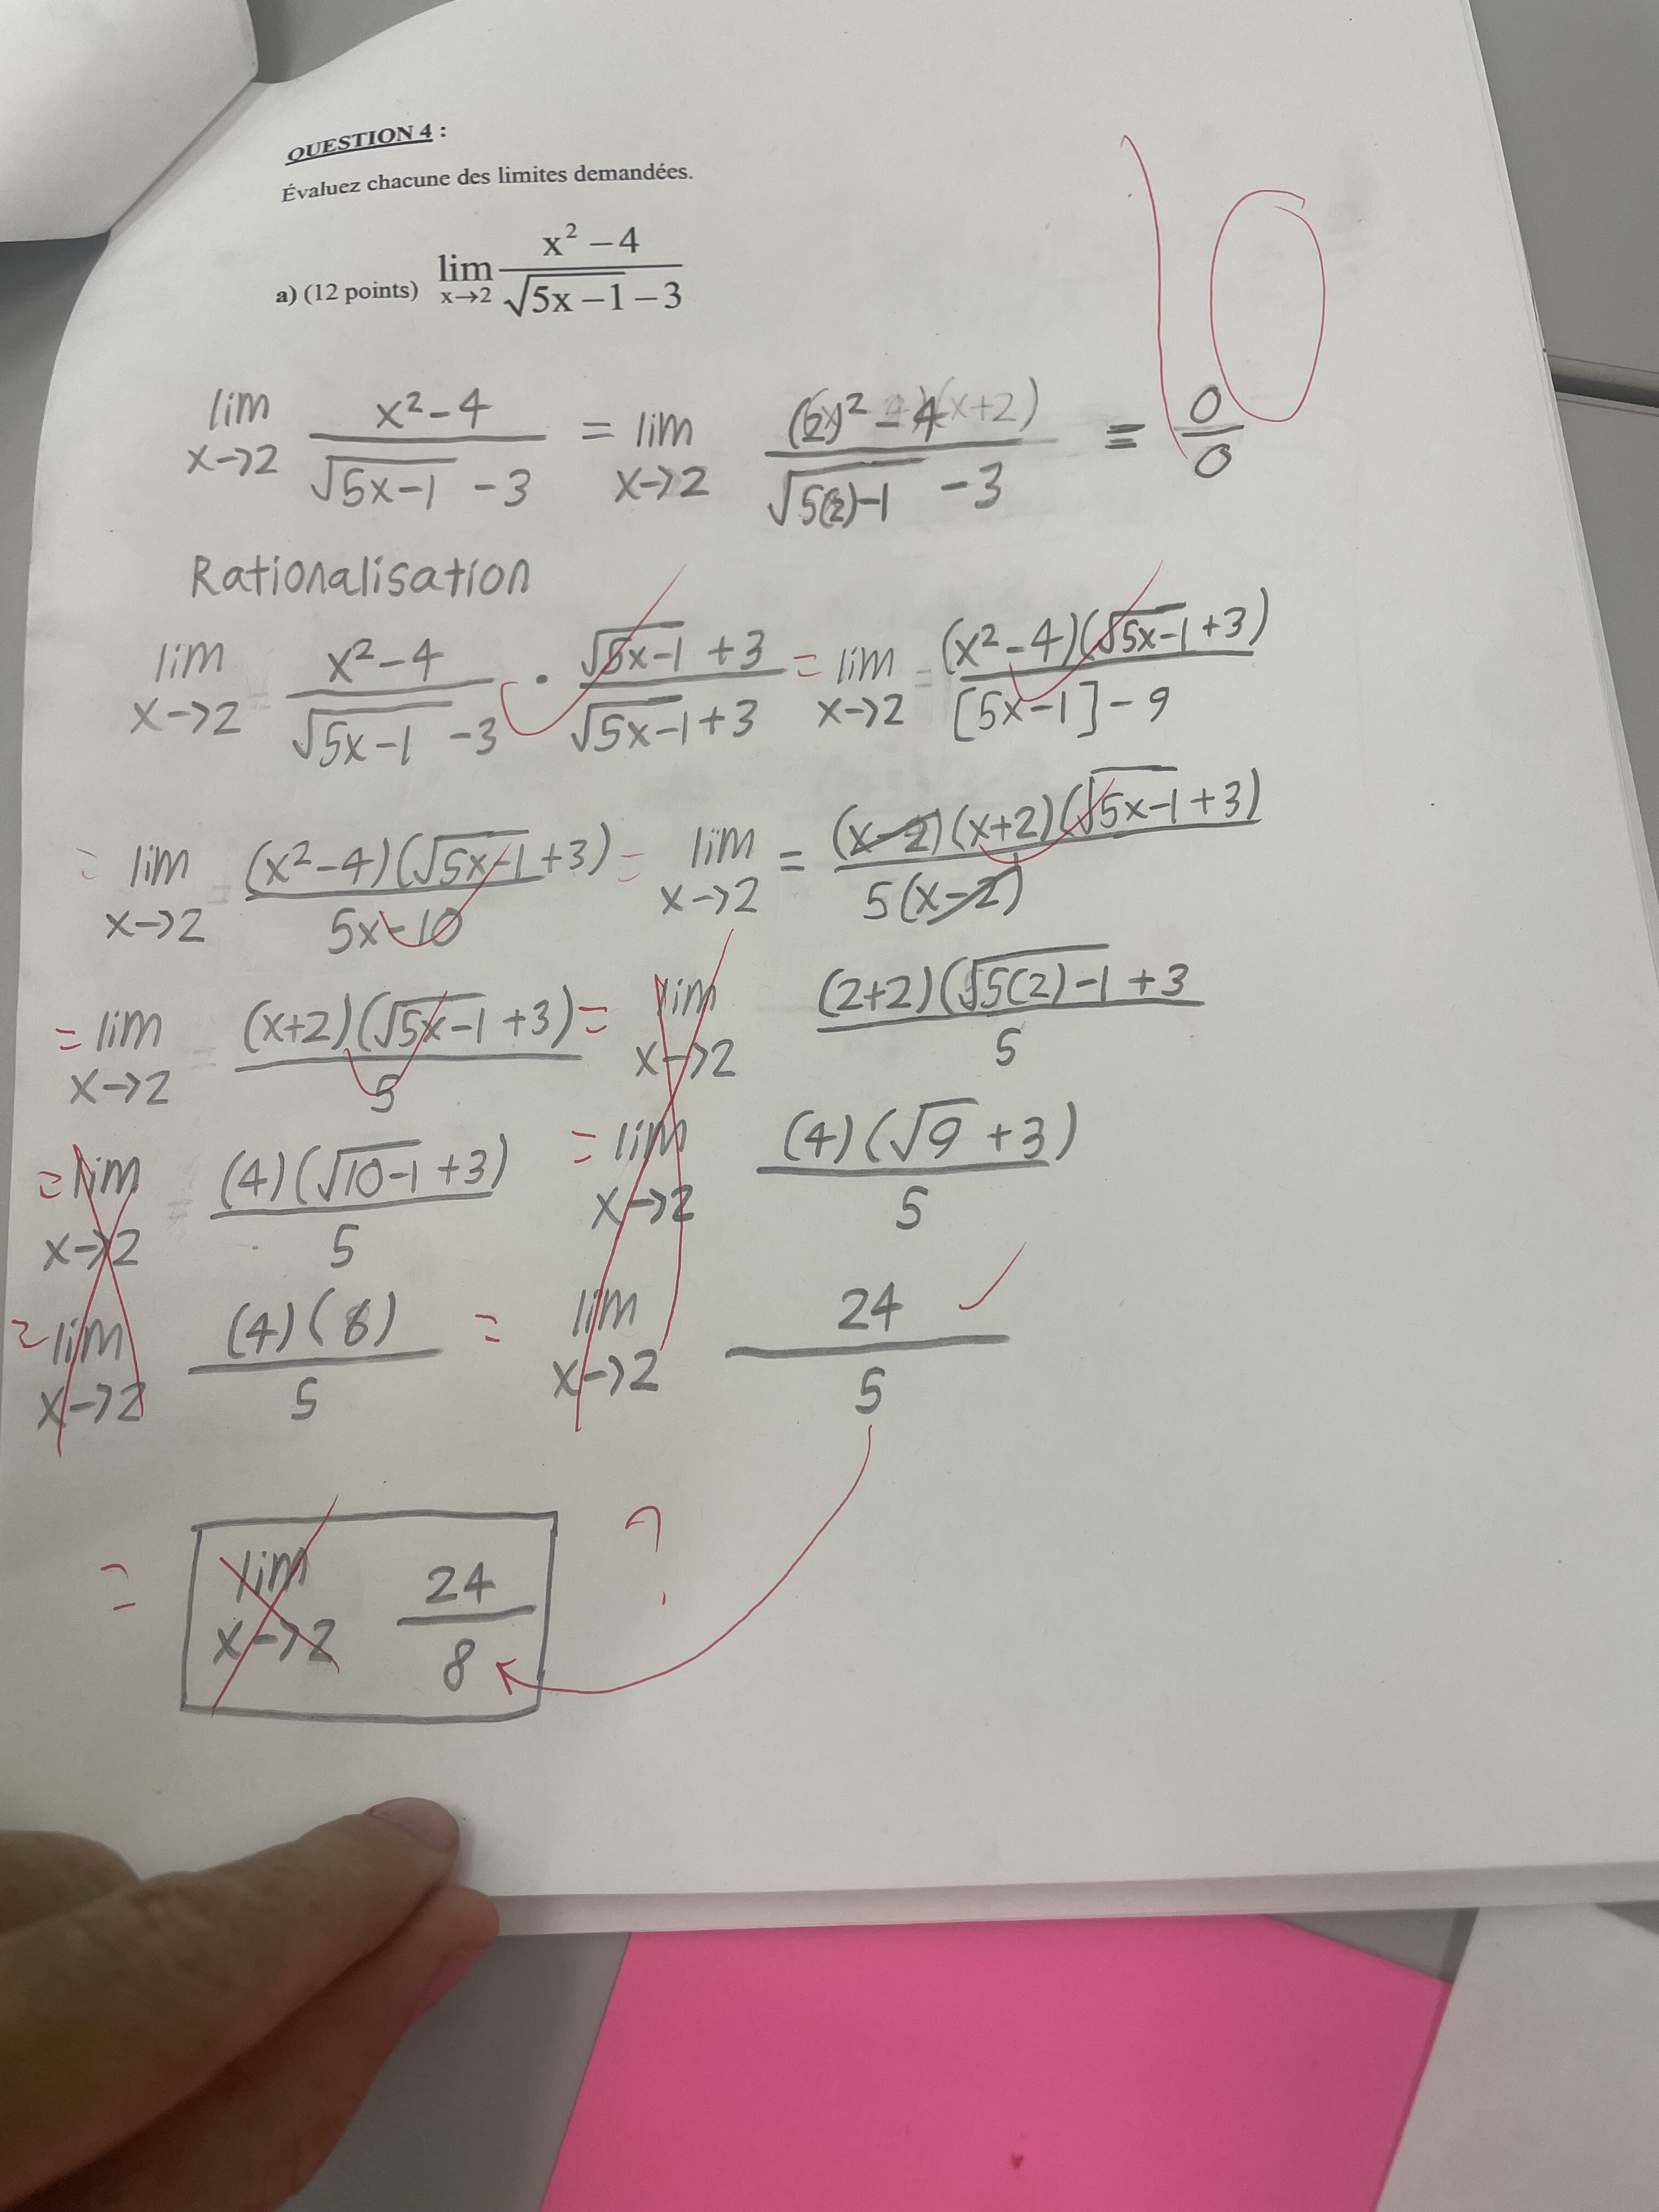 QUESTION 4 :
Évaluez chacune des limites demandées.
a) (12 points) lim x→2 (x² – 4)/(√(5x – 1) – 3)
10
lim x→2 (x² - 4)/(√(5x-1) - 3) = lim x→2 ((2)² - 4)/(√(5(2)-1) - 3) = 0/0
Rationalisation
lim x→2 (x² - 4)/(√(5x-1) - 3) · (√(5x-1) + 3)/(√(5x-1) + 3) = lim x→2 (x² - 4)(√(5x-1) + 3)/([5x-1] - 9)
= lim x→2 (x² - 4)(√(5x-1) + 3)/(5x-10) = lim x→2 = (x-2)(x+2)(√(5x-1) + 3)/(5(x-2))
= lim x→2 (x+2)(√(5x-1) + 3)/5 = lim x→2 (2+2)(√(5(2)-1) + 3/5
= lim x→2 (4)(√(10-1) + 3)/5 = lim x→2 (4)(√9 + 3)/5
= lim x→2 (4)(6)/5 = lim x→2 24/5
= lim x→2 24/8 ?